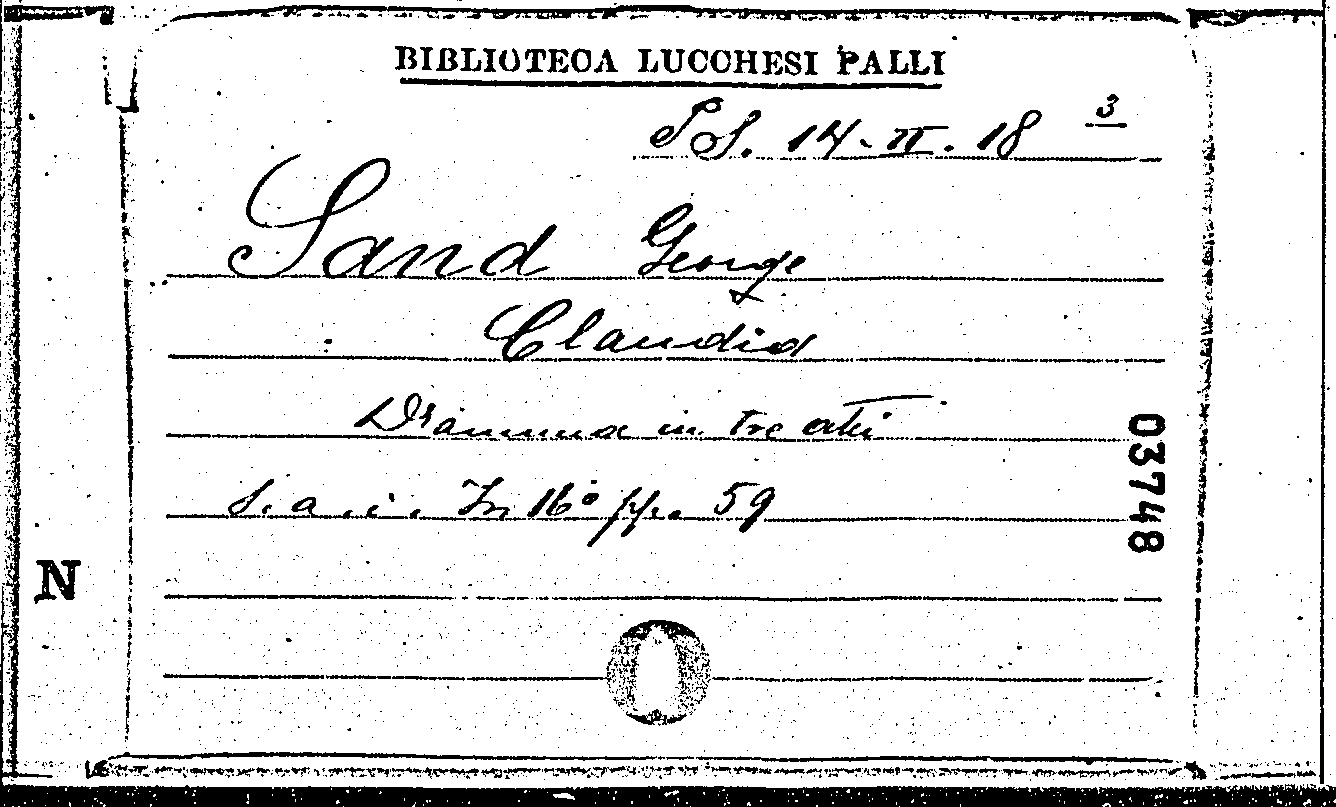 BIBLIOTECA LUCCHESI PALLI
PS. 14. II. 18 3
Sand George
Claudia
Dramma in tre atti
S. a. i. In 16° pp. 59
03748
N